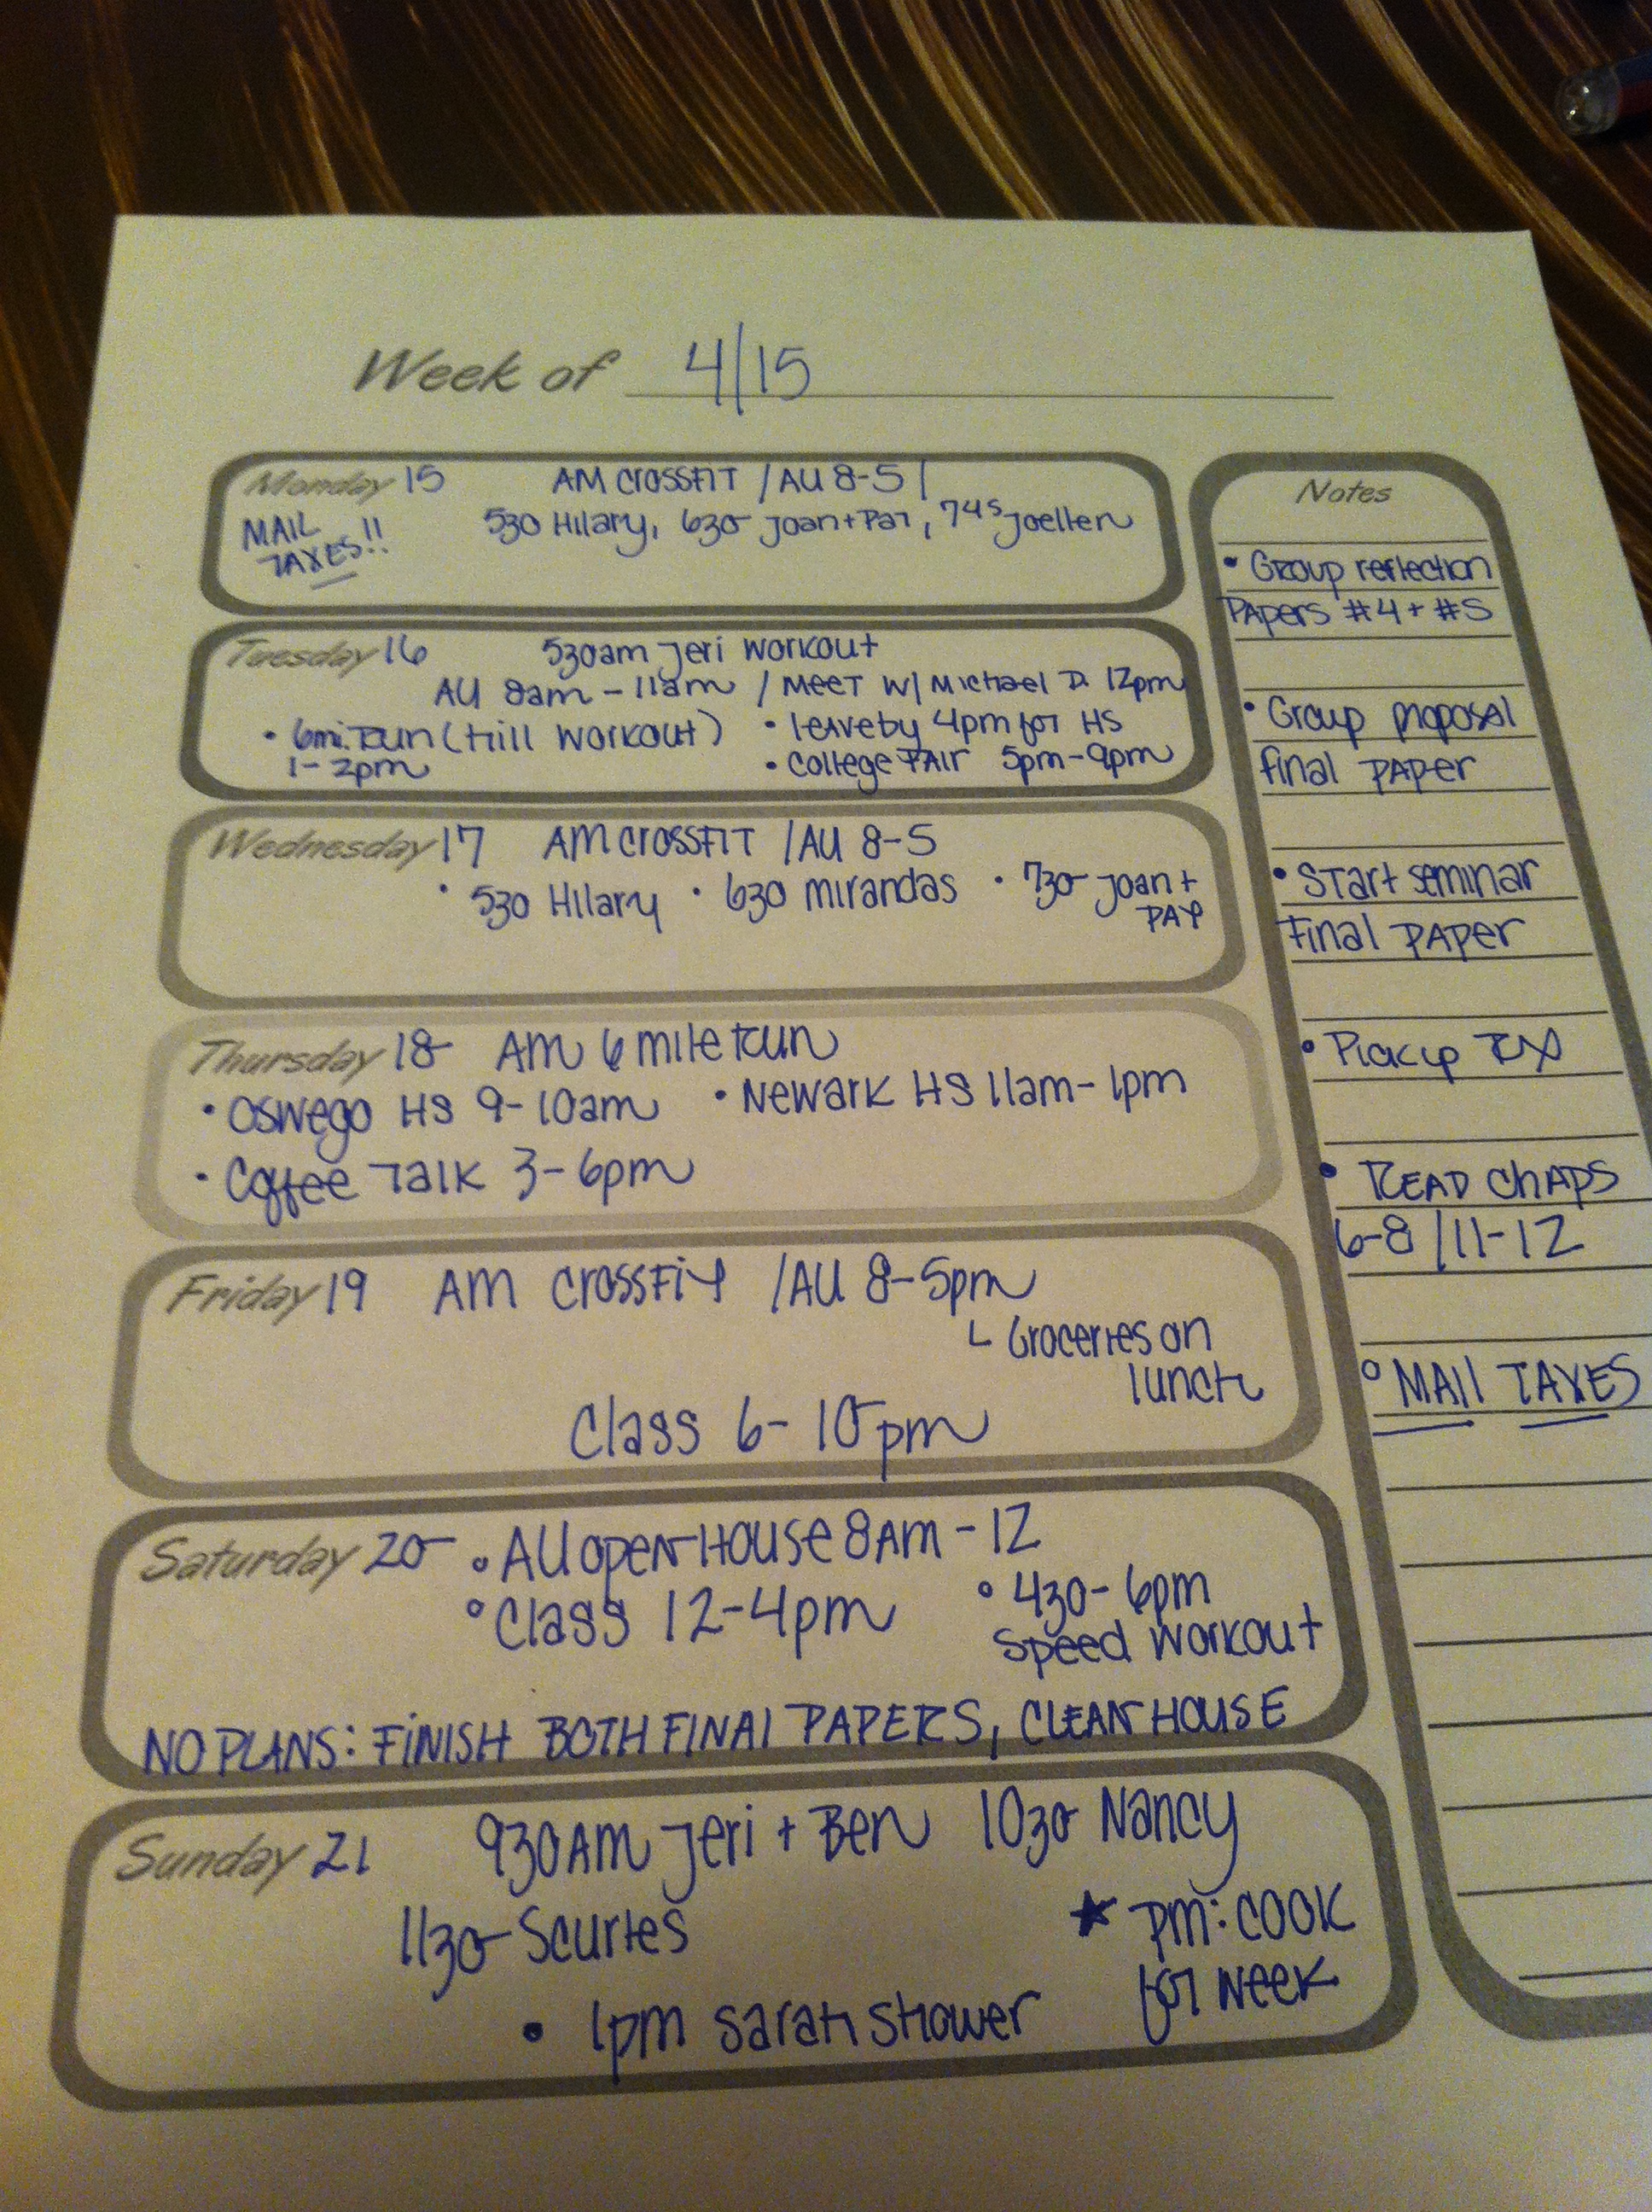 Week of 4/15
Monday 15 AM CROSSFIT / AU 8-5 /
MAIL TAXES!!
530 Hilary, 630 Joan + Pat, 745 Joellen
Tuesday 16 530am Jeri workout
AU 8am - 11am / MEET W/ Michael D. 12pm
• 6mi. Run (Hill workout)
1-2pm
• leave by 4pm for HS
• College FAIR 5pm-9pm
Wednesday 17 AM CROSSFIT / AU 8-5
• 530 Hilary • 630 Mirandas • 730 Joan +
PAT
Thursday 18 AM 6 mile Run
• Oswego HS 9-10am • Newark HS 11am-1pm
• Coffee Talk 3-6pm
Friday 19 AM CROSSFIT / AU 8-5pm
Groceries on
lunch
Class 6-10pm
Saturday 20 • AU OPEN HOUSE 8AM-12
• Class 12-4pm
• 430-6pm
Speed Workout
NO PLANS: FINISH BOTH FINAL PAPERS, CLEAN HOUSE
Sunday 21 930AM Jeri + Ben 1030 Nancy
1130 Scurtes
• 1pm Sarah Shower
★ pm: COOK
for week
Notes
• Group reflection
PAPers #4 + #5
• Group proposal
final PAPer
• START seminar
Final PAPer
• Pickup RX
• READ CHAPS
6-8 / 11-12
• MAIL TAXES